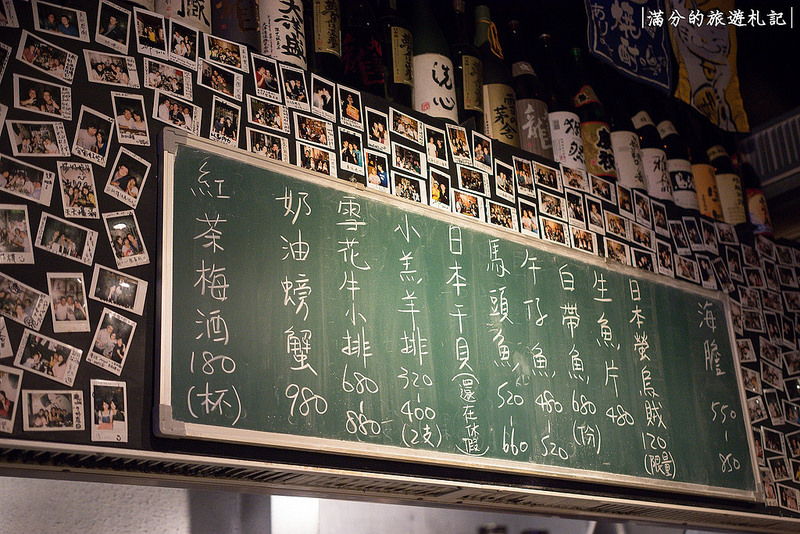 |滿分的旅遊札記|
海膽 550-850
日本螢烏賊 120(限量)
生魚片 480
白帶魚 680(份)
午仔魚 480-520
馬頭魚 520-660
日本干貝(還在休假)
小羔羊排 320-400(2支)
雪花牛小排 680-880
奶油螃蟹 980
紅茶梅酒 180(杯)
洗心